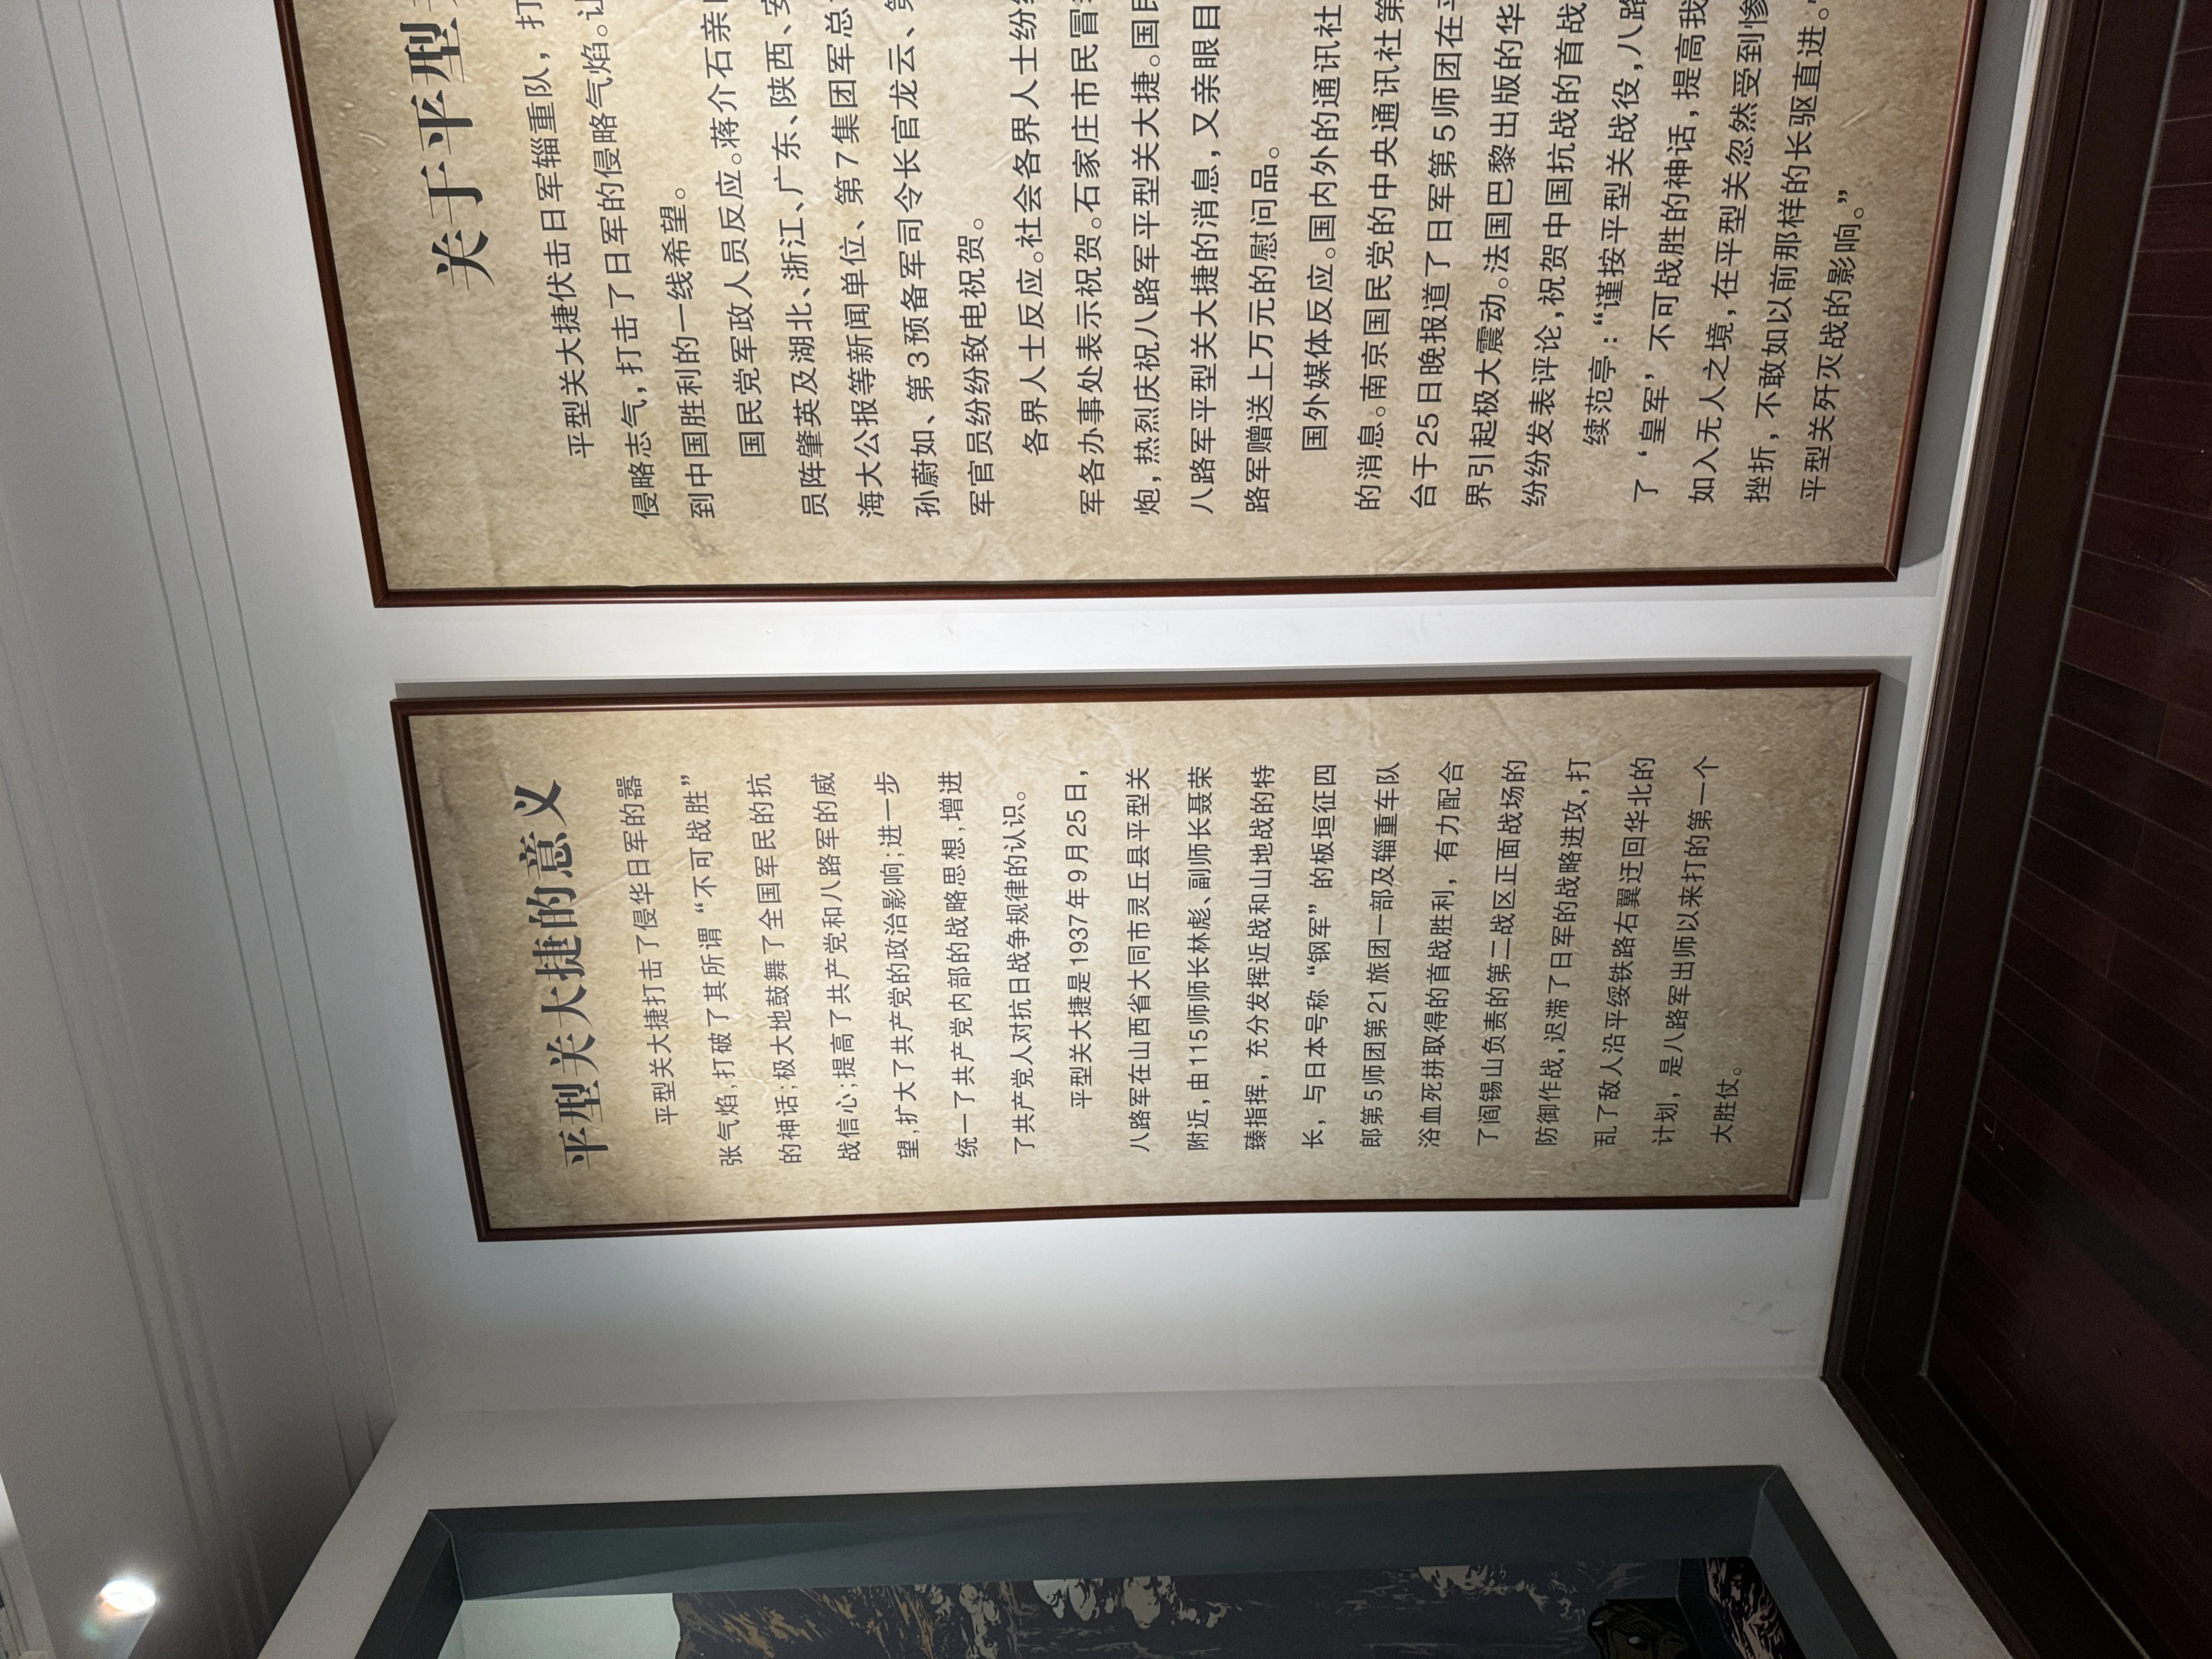 平型关大捷的意义
平型关大捷打击了侵华日军的嚣
张气焰,打破了其所谓“不可战胜”
的神话;极大地鼓舞了全国军民的抗
战信心;提高了共产党和八路军的威
望,扩大了共产党的政治影响;进一步
统一了共产党内部的战略思想,增进
了共产党人对抗日战争规律的认识。
平型关大捷是1937年9月25日,
八路军在山西省大同市灵丘县平型关
附近,由115师师长林彪、副师长聂荣
臻指挥,充分发挥近战和山地战的特
长,与日本号称“钢军”的板垣征四
郎第5师团第21旅团一部及辎重车队
浴血死拼取得的首战胜利,有力配合
了阎锡山负责的第二战区正面战场的
防御作战,迟滞了日军的战略进攻,打
乱了敌人沿平绥铁路右翼迂回华北的
计划,是八路军出师以来打的第一个
大胜仗。
关于平型
平型关大捷伏击日军辎重队,打
侵略志气,打击了日军的侵略气焰。让
到中国胜利的一线希望。
国民党军政人员反应。蒋介石亲
员阵肇英及湖北、浙江、广东、陕西、安
海大公报等新闻单位、第7集团军总
孙蔚如、第3预备军司令长官龙云、第
军官员纷纷致电祝贺。
各界人士反应。社会各界人士纷纷
军各办事处表示祝贺。石家庄市民冒
炮,热烈庆祝八路军平型关大捷。国民
八路军平型关大捷的消息,又亲眼目
路军赠送上万元的慰问品。
国外媒体反应。国内外的通讯社
的消息。南京国民党的中央通讯社第
台于25日晚报道了日军第5师团在平
界引起极大震动。法国巴黎出版的华
纷纷发表评论,祝贺中国抗战的首战
续范亭:“谨按平型关战役,八路
了‘皇军’不可战胜的神话,提高我
如入无人之境,在平型关忽然受到惨
挫折,不敢如以前那样的长驱直进。
平型关歼灭战的影响。”